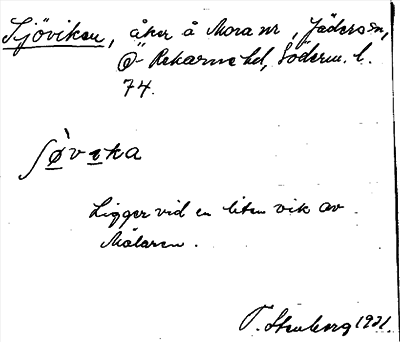 Sjöviken, åker å Mora nr, Jäders sn,
Ö- Rekarne hd, Söderm. l.
74.
ʃø̀vıka
Ligger vid en liten vik av
Mälaren.
T. Stenberg 1931.